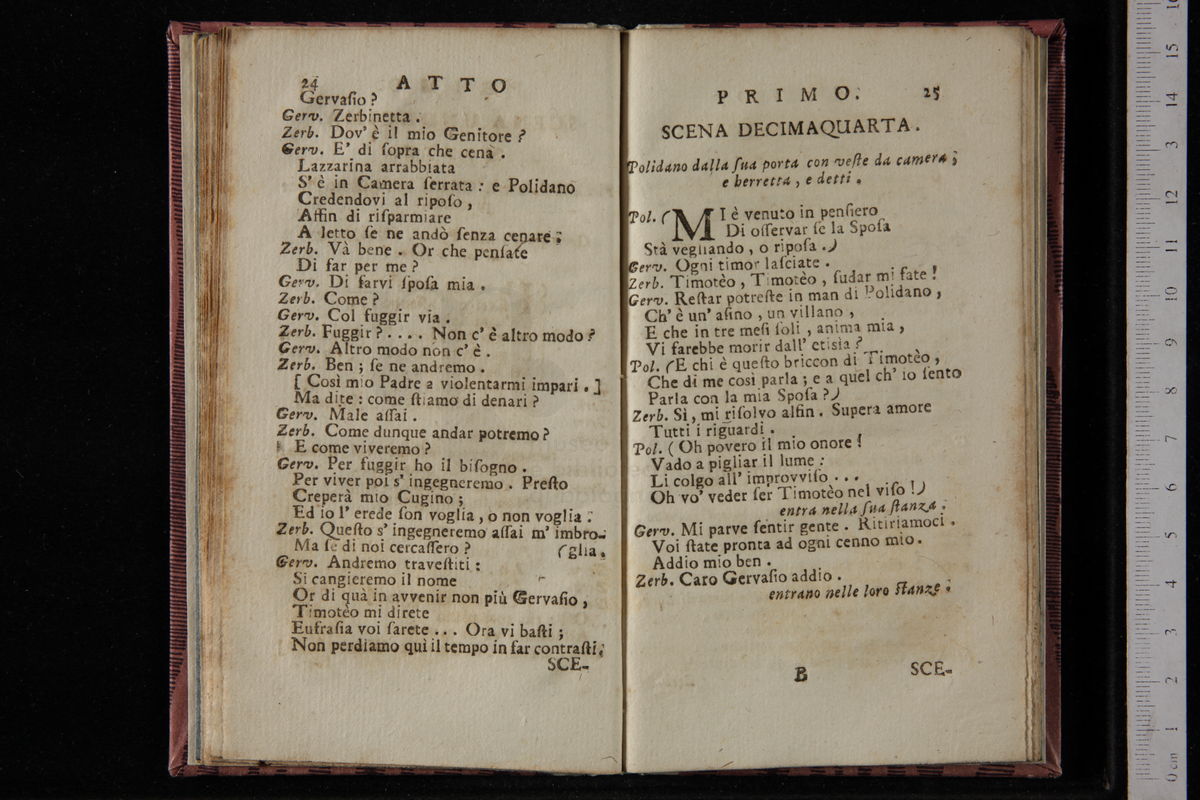 24 ATTO
Gervaſio ?
Gerv. Zerbinetta .
Zerb. Dov' è il mio Genitore ?
Gerv. E' di ſopra che cena .
Lazzarina arrabbiata
S' è in Camera ſerrata : e Polidano
Credendovi al ripoſo ,
Affin di riſparmiare
A letto ſe ne andò ſenza cenare ;
Zerb. Và bene . Or che penſate
Di far per me ?
Gerv. Di farvi ſpoſa mia .
Zerb. Come ?
Gerv. Col fuggir via .
Zerb. Fuggir ? . . . . Non c' è altro modo ?
Gerv. Altro modo non c' è .
Zerb. Ben ; ſe ne andremo .
[ Così mio Padre a violentarmi impari . ]
Ma dite : come ſtiamo di denari ?
Gerv. Male aſſai .
Zerb. Come dunque andar potremo ?
E come viveremo ?
Gerv. Per fuggir ho il biſogno .
Per viver poi s' ingegneremo . Preſto
Creperà mio Cugino ;
Ed io l' erede ſon voglia , o non voglia .
Zerb. Queſto s' ingegneremo aſſai m' imbro-
Ma ſe di noi cercaſſero ? (glia.
Gerv. Andremo traveſtiti :
Si cangieremo il nome
Or di quà in avvenir non più Gervaſio ,
Timotèo mi direte
Eufraſia voi ſarete . . . Ora vi baſti ;
Non perdiamo quì il tempo in far contraſti.
SCE-
PRIMO. 25
SCENA DECIMAQUARTA.
Polidano dalla ſua porta con veſte da camera ;
e berretta , e detti .
Pol. ( MI è venuto in penſiero
Di oſſervar ſe la Spoſa
Stà vegliando , o ripoſa .)
Gerv. Ogni timor laſciate .
Zerb. Timotèo , Timotèo , ſudar mi fate !
Gerv. Reſtar potreſte in man di Polidano ,
Ch' è un' aſino , un villano ,
E che in tre meſi ſoli , anima mia ,
Vi farebbe morir dall' etisia ?
Pol. (E chi è queſto briccon di Timotèo ,
Che di me così parla ; e a quel ch' io ſento
Parla con la mia Spoſa ?)
Zerb. Sì , mi riſolvo alfin . Supera amore
Tutti i riguardi .
Pol. ( Oh povero il mio onore !
Vado a pigliar il lume :
Li colgo all' improvviſo . . .
Oh vo' veder ſer Timotèo nel viſo !)
entra nella ſua ſtanza .
Gerv. Mi parve ſentir gente . Ritiriamoci .
Voi ſtate pronta ad ogni cenno mio .
Addio mio ben .
Zerb. Caro Gervaſio addio .
entrano nelle loro ſtanze .
B SCE-